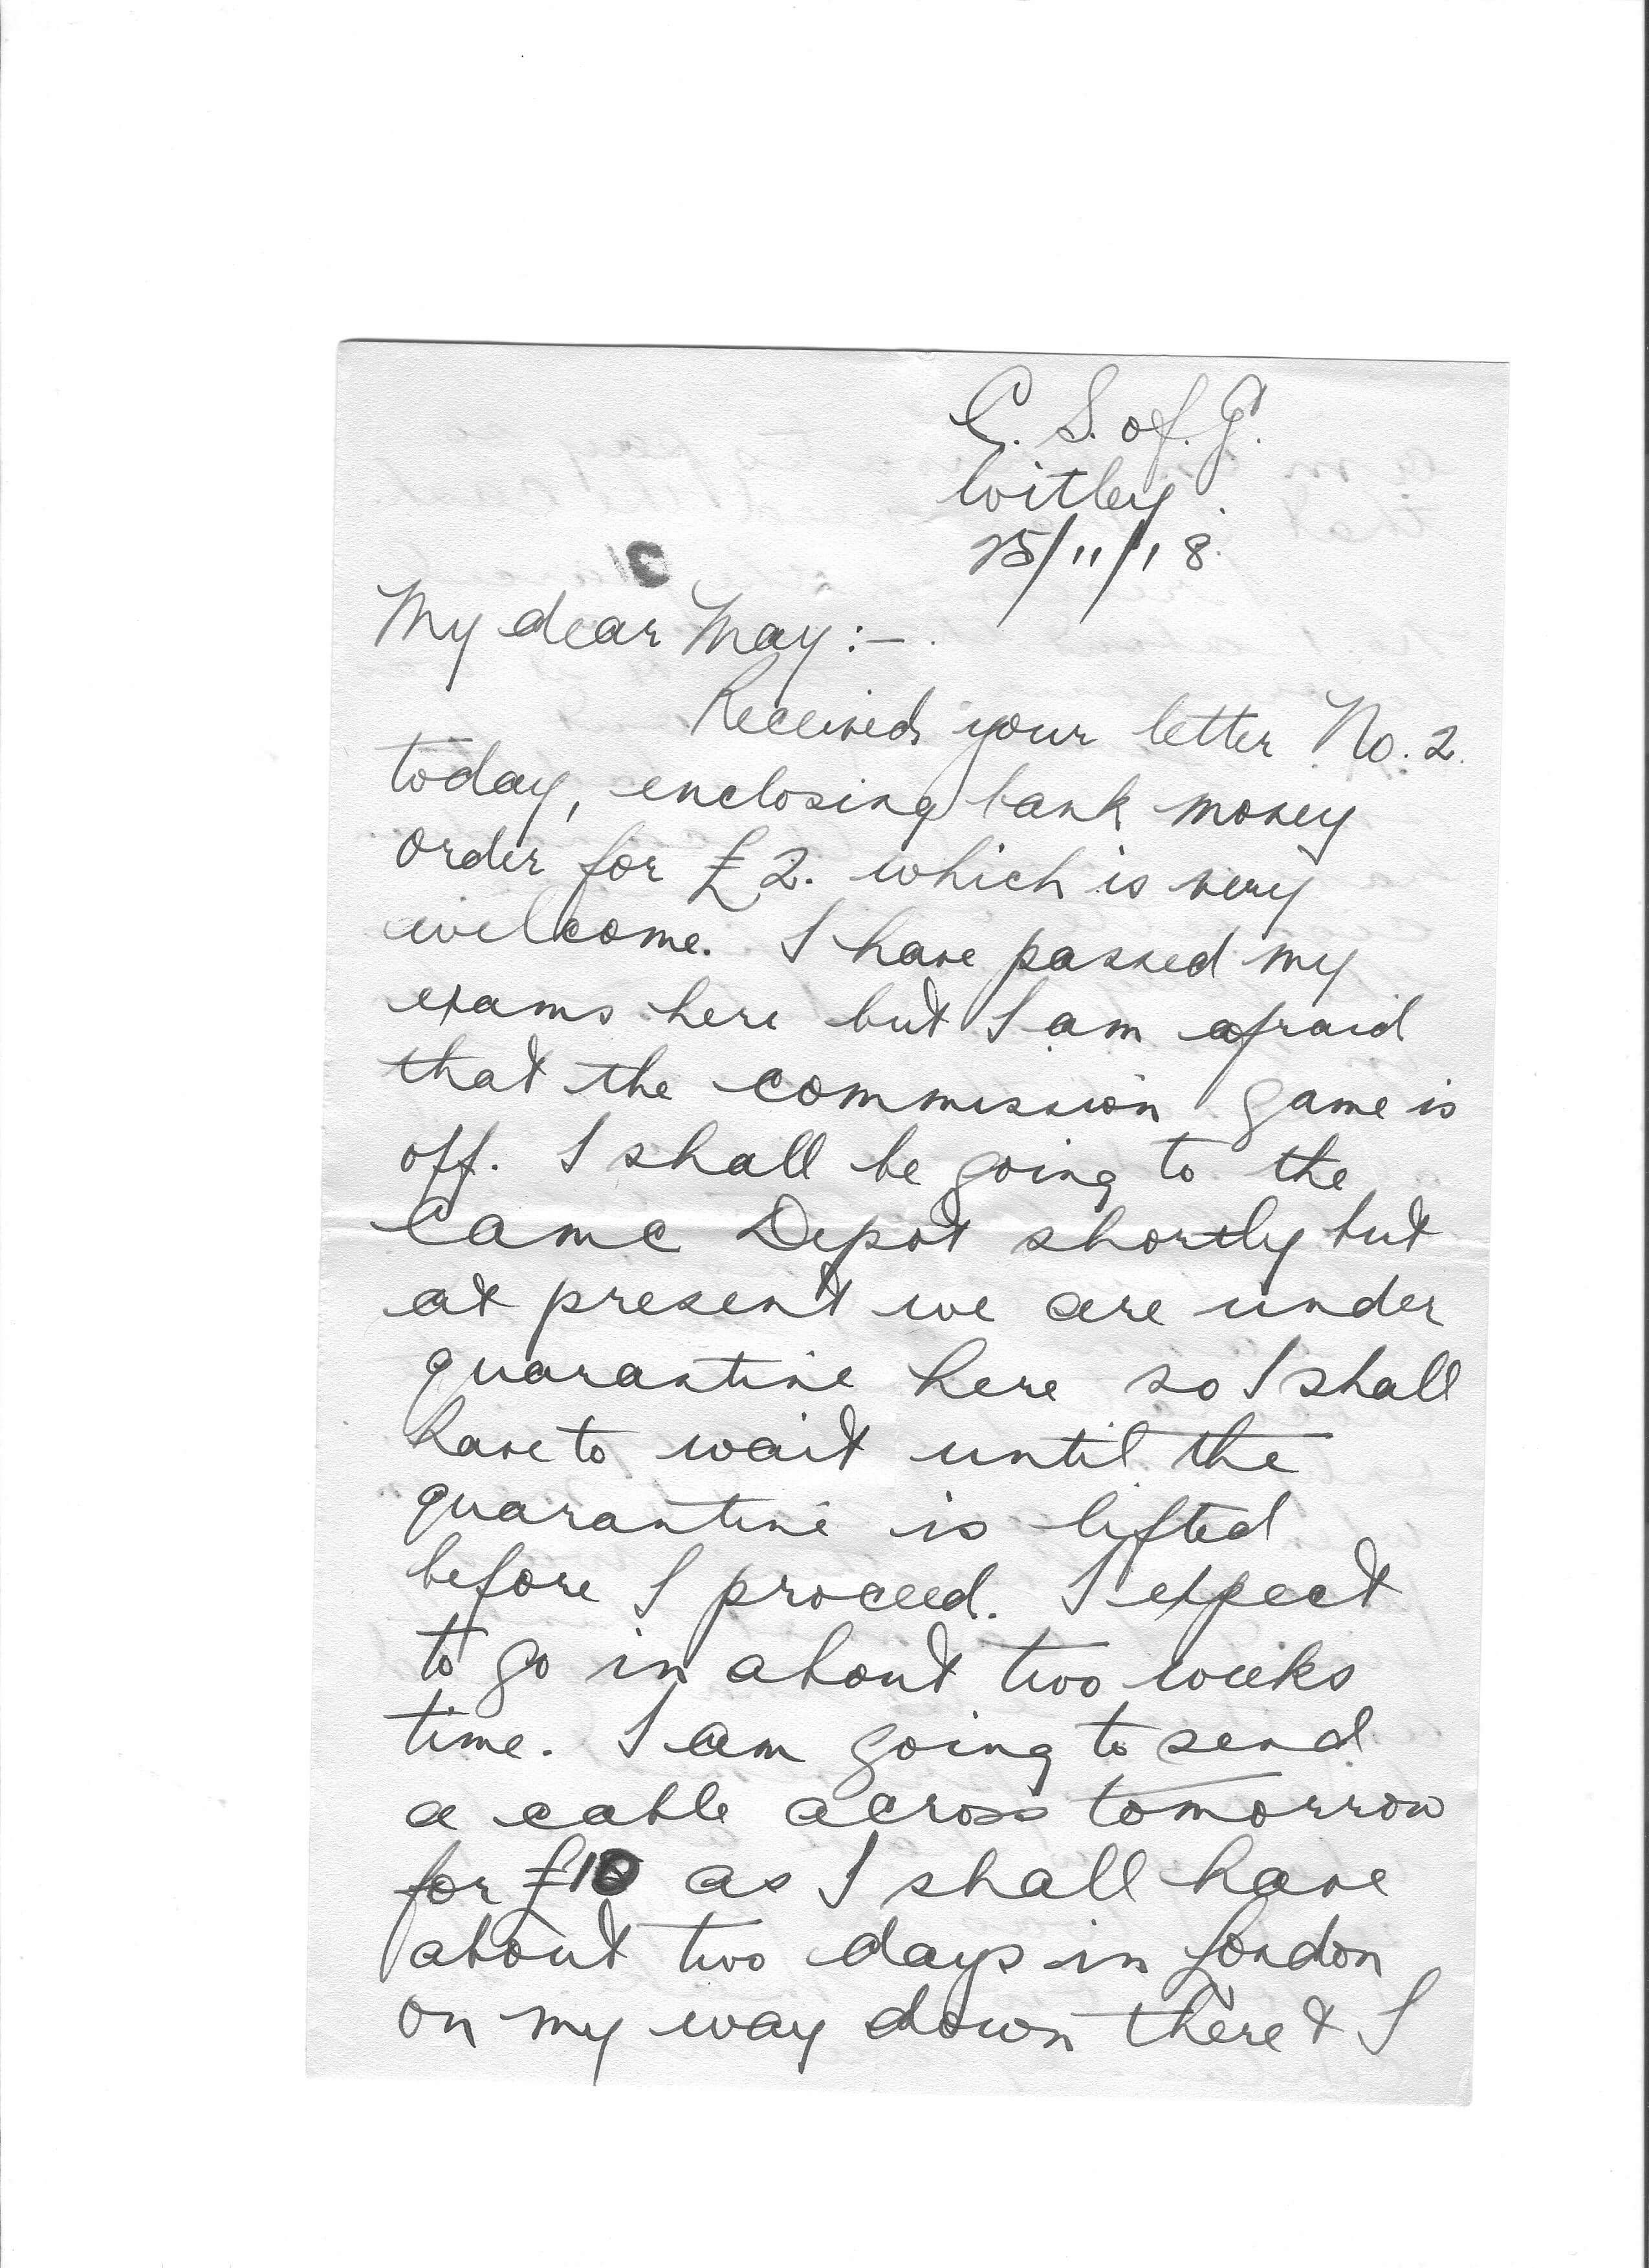 C. S. of. G.
Witley.
25/11/18.
My dear May:-
Received your letter No. 2.
today, enclosing bank money
order for £2. which is very
welcome. I have passed my
exams here but I am afraid
that the commission game is
off. I shall be going to the
Camc Depot shortly but
at present we are under
quarantine here so I shall
have to wait until the
quarantine is lifted
before I proceed. I expect
to go in about two weeks
time. I am going to send
a cable across tomorrow
for £10 as I shall have
about two days in London
on my way down there & I